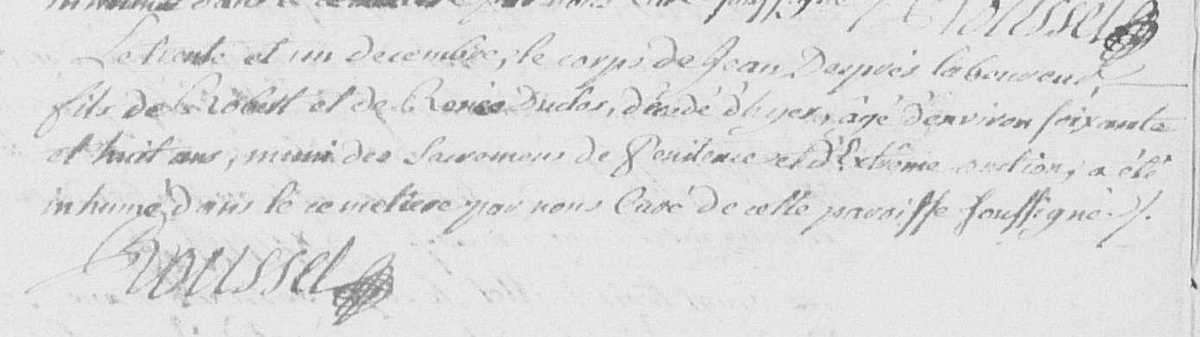 inhumé dans le cemetiere par nous Curé soussigné Roussel
Le trente et un decembre, le corps de Jean Després laboureur,
fils de Robert et de Renée Duclos, décédé d'hyer, âgé d'environ soixante
et huit ans, muni des Sacremens de Penitence et d'Extrême onction, a été
inhumé dans le cemetiere par nous Curé de cette paroisse soussigné ./.
Roussel